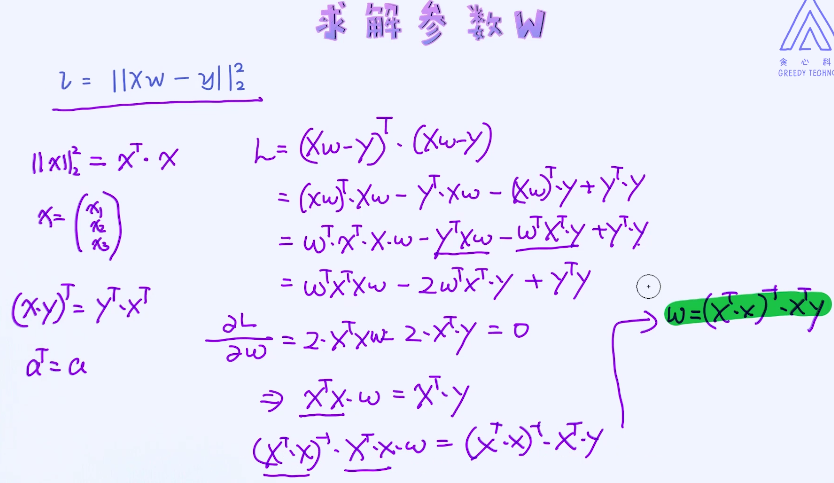 求解参数W
贪心科
GREEDY TECHNO
L = ||Xw - y||₂²
||x||₂² = xᵀ·x
x = (x₁ x₂ x₃)
(x·y)ᵀ = yᵀ·xᵀ
aᵀ = a
L = (Xw-y)ᵀ·(Xw-y)
= (Xw)ᵀ·Xw - yᵀ·Xw - (Xw)ᵀ·y + yᵀ·y
= wᵀ·xᵀ·x·w - yᵀXw - wᵀXᵀ·y + yᵀ·y
= wᵀXᵀXw - 2wᵀxᵀ·y + yᵀy
∂L/∂w = 2·XᵀXw - 2·Xᵀ·y = 0
⇒ XᵀX·w = Xᵀ·y
(Xᵀ·X)⁻¹·Xᵀ·X·w = (Xᵀ·X)⁻¹·Xᵀ·y
w = (Xᵀ·X)⁻¹·Xᵀy